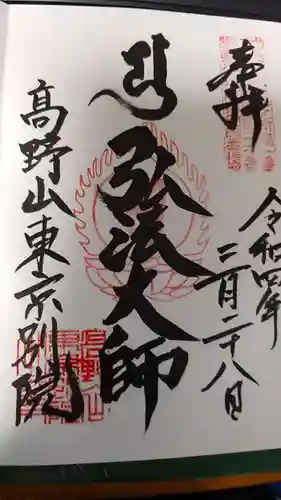 奉拝
令和四年
二月二十八日
弘法大師
高野山東京別院